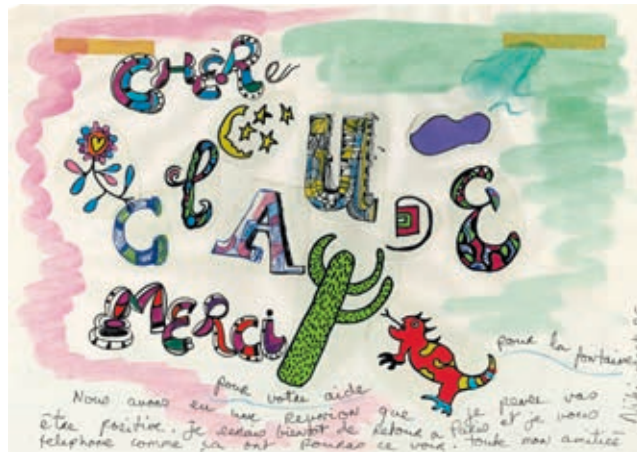 CHÈRe
CLAUDE
MERCI
pour votre aide
pour la fontaine
Nous avons eu une reunion que je pense vas
être positive. Je serais bientot de retour a Paris et je vous
telephone comme ça ont pourras ce voir. toute mon amitié